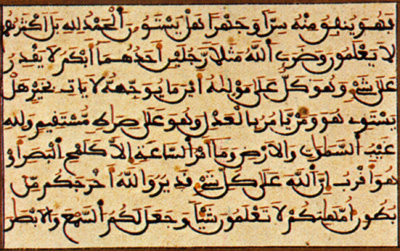 فهو ينفق منه سرا وجهرا هل يستون الحمد لله بل اكثرهم
لا يعلمون وضرب الله مثلا رجلين احدهما ابكم لا يقدر
على شىء وهو كل على موليه اينما يوجهه لا يات بخير هل
يستوى هو ومن يامر بالعدل وهو على صراط مستقيم ولله
غيب السموت والارض وما امر الساعة الا كلمح البصر او
هو اقرب ان الله على كل شىء قدير والله اخرجكم من
بطون امهتكم لا تعلمون شيئا وجعل لكم السمع والابصر